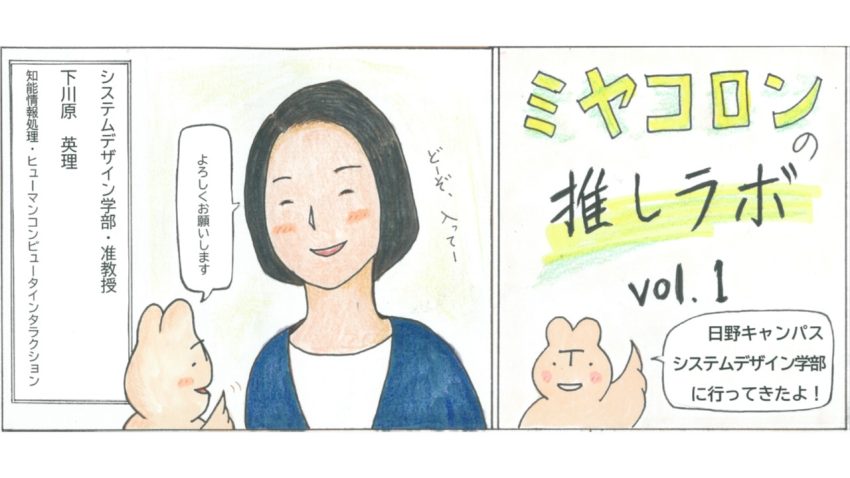 ミヤコロン
の
推しラボ
vol.1
日野キャンパス
システムデザイン学部
に行ってきたよ！
どーぞ、入ってー
よろしくお願いします
システムデザイン学部・准教授
下川原 英理
知能情報処理・ヒューマンコンピュータインタラクション